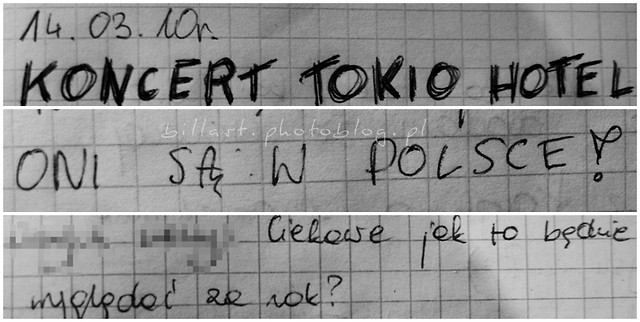 14.03.10r.
KONCERT TOKIO HOTEL
billart.photoblog.pl
ONI SĄ W POLSCE!
Ciekawe jak to będzie
wyglądać za rok?